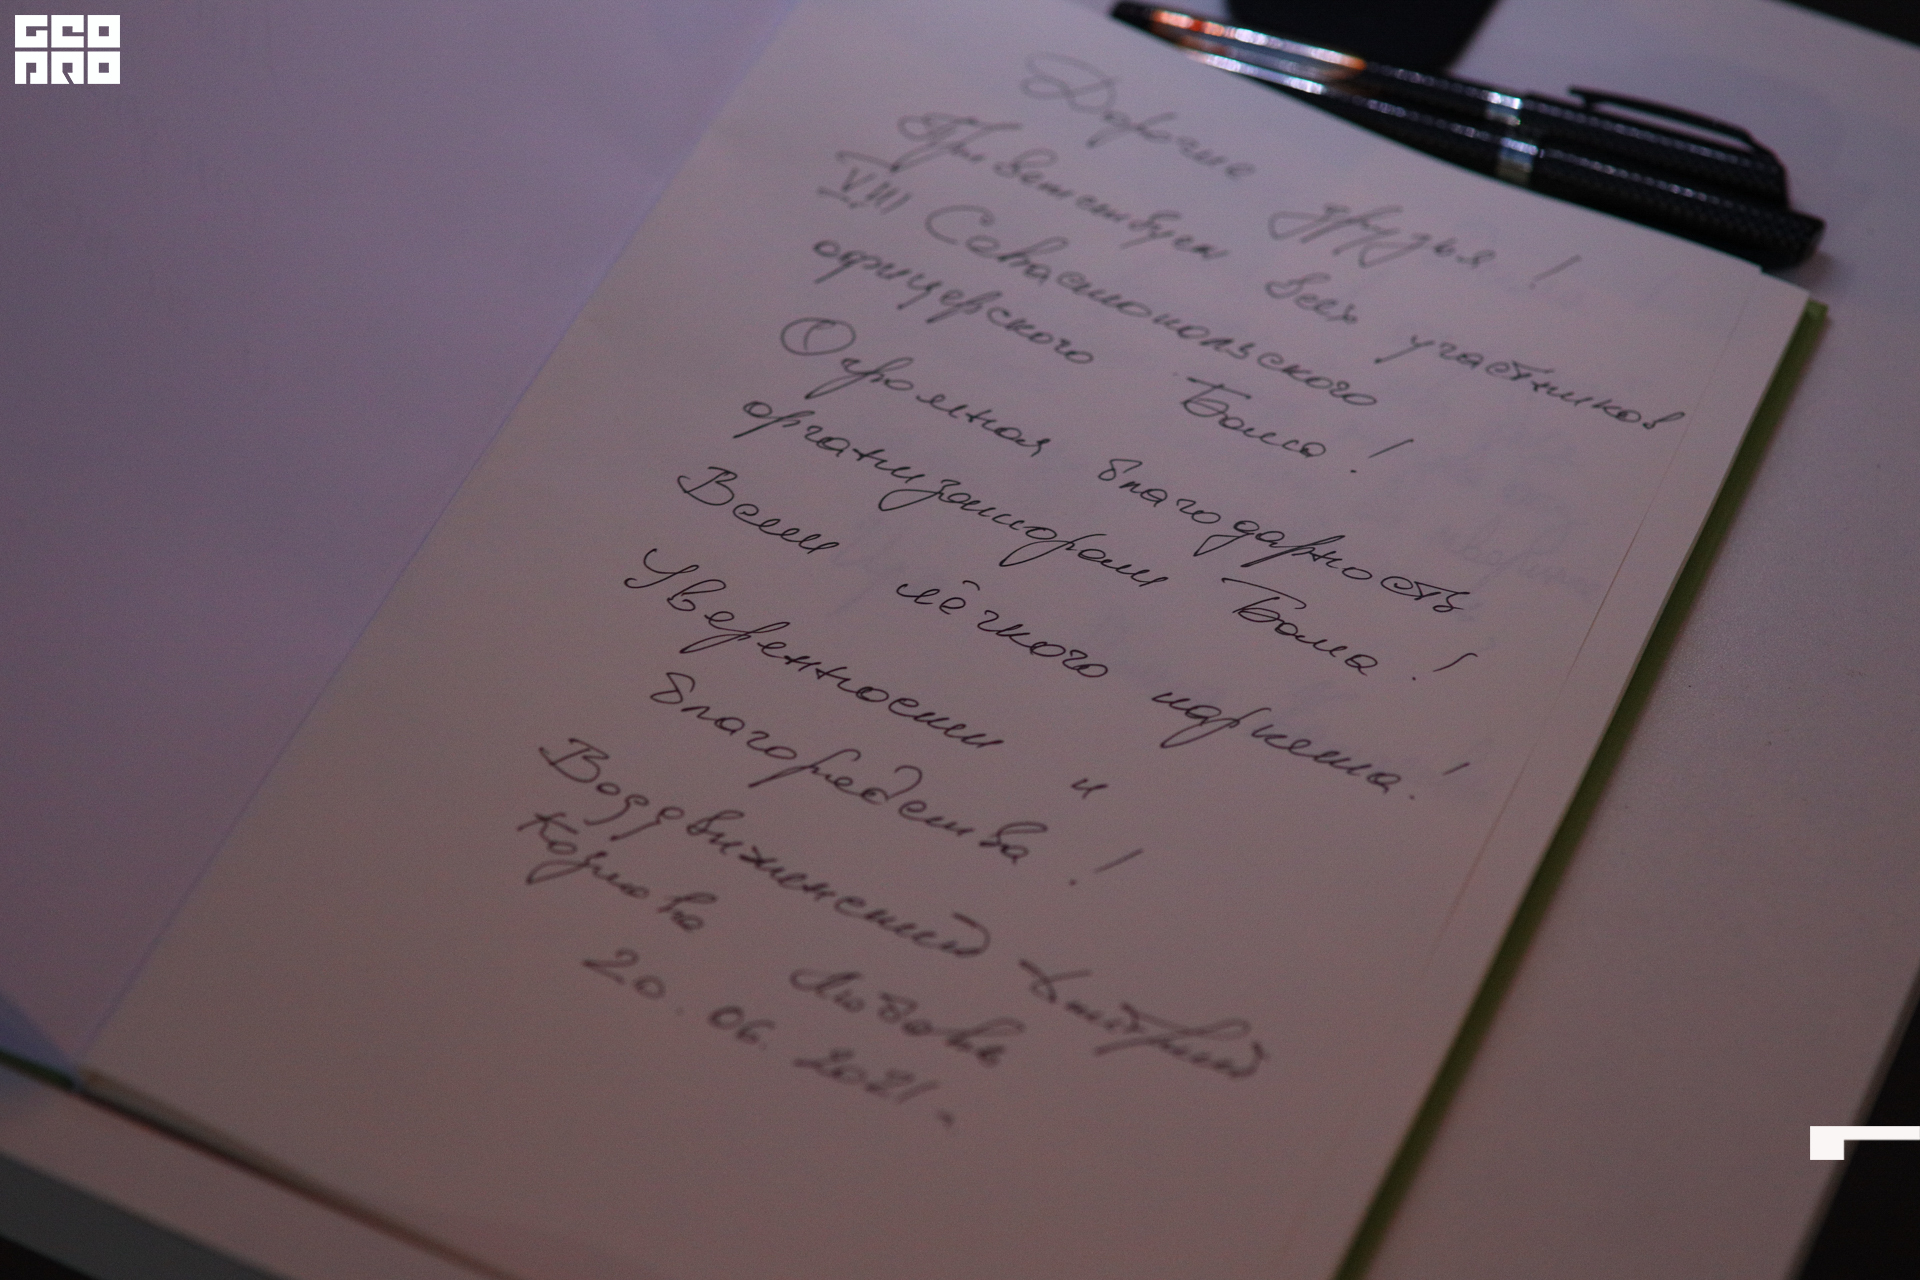 GEO
PRO
Дорогие друзья!
Приветствуем всех участников
VIII Севастопольского
офицерского Бала!
Огромная благодарность
организаторам Бала!
Всем лёгкого паркета!
Уверенности и
благородства!
Воздвиженский
Козлова Любовь
20.06.2021г.